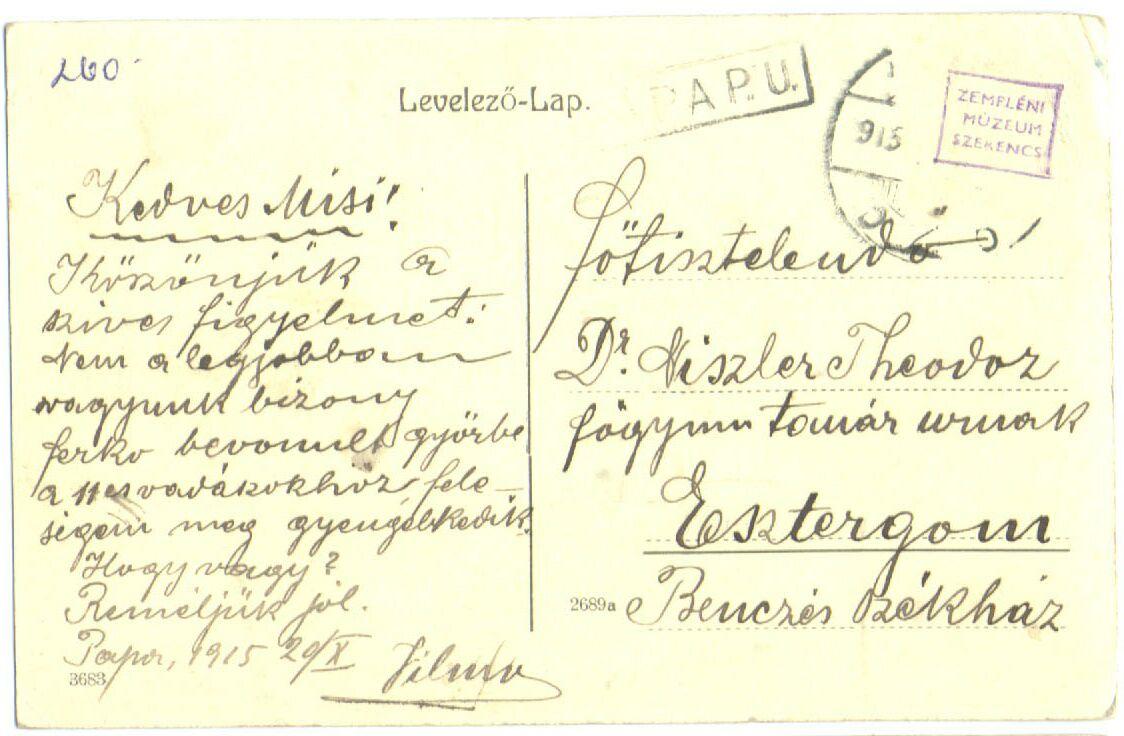 260
Levelező-Lap.
PAP.U.
915
ZEMPLÉNI
MÚZEUM
SZERENCS
Kedves Misi!
Köszönjük a
szives figyelmet!
Nem a legjobban
vagyunk bizony
ferko bevonult győrbe
a 11es vadákokhoz, fele-
ségem meg gyengélkedik.
Hogy vagy?
Reméljük jól.
Papa, 1915 20/X
Vilmo
3683
főtisztelendő!
Dr. Niszler Theodoz
főgymn tanár urnak
Esztergom
2689a
Benczés Székház